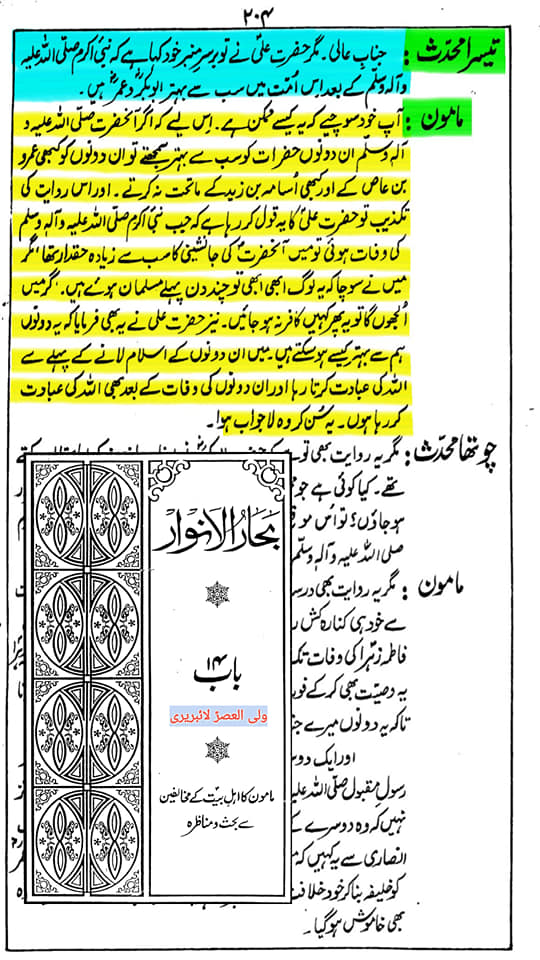 ۲۰۴
تیسرا محدّث : جناب عالی ۔ مگر حضرت علیؑ نے تو برسرِ منبر خود کہا ہے کہ نبی اکرم صلّی اللہ علیہ
وآلہ وسلّم کے بعد اِس اُمّت میں سب سے بہتر ابوبکرؓ و عمرؓ ہیں ۔
مامون : آپ خود سوچیے کہ یہ کیسے ممکن ہے ۔ اِس لیے کہ اگر آنحضرت صلّی اللہ علیہ و
آلہ وسلّم ان دونوں حضرات کو سب سے بہتر سمجھتے تو ان دونوں کو کبھی عمرو
بن عاص کے اور کبھی اُسامہ بن زید کے ماتحت نہ کرتے ۔ اور اس روایت کی
تکذیب تو حضرت علیؑ کا یہ قول کر رہا ہے کہ جب نبی اکرم صلّی اللہ علیہ وآلہ وسلّم
کی وفات ہوئی تو میں آنحضرتؐ کی جانشینی کا سب سے زیادہ حقدار تھا مگر
میں نے سوچا کہ یہ لوگ ابھی ابھی تو چند دن پہلے مسلمان ہوئے ہیں ، اگر میں
اُلجھوں گا تو یہ پھر کہیں کافر نہ ہو جائیں ۔ نیز حضرت علی نے یہ بھی فرمایا کہ یہ دونوں
ہم سے بہتر کیسے ہوسکتے ہیں ۔ میں ان دونوں کے اسلام لانے کے پہلے سے
اللہ کی عبادت کرتا رہا اور ان دونوں کی وفات کے بعد بھی اللہ کی عبادت
کر رہا ہوں ۔ یہ سُن کر وہ لاجواب ہوا ۔
چوتھا محدّث : مگر یہ روایت بھی تو ہے
تھے ۔ کیا کوئی ہے جو
ہو جاؤں ؟ تو اُس
صلی اللہ علیہ وآلہ وسلّم
مامون : مگر یہ روایت بھی
سے خود ہی کنارہ کش
فاطمہ زہراؑ کی وفات
یہ وصیّت بھی کر کے
تاکہ یہ دونوں میرے
اور ایک
رسول مقبول صلّی اللہ
نہیں کہ وہ دوسرے کے
انصاری سے یہ کہیں کہ
کو خلیفہ بنا کر خود
بھی خاموش ہوگیا ۔
بحار الانوار
باب ۱۴
ولی العصرؑ لائبریری
مامون کا اہلِ بیتؑ کے مخالفین
سے بحث و مناظرہ